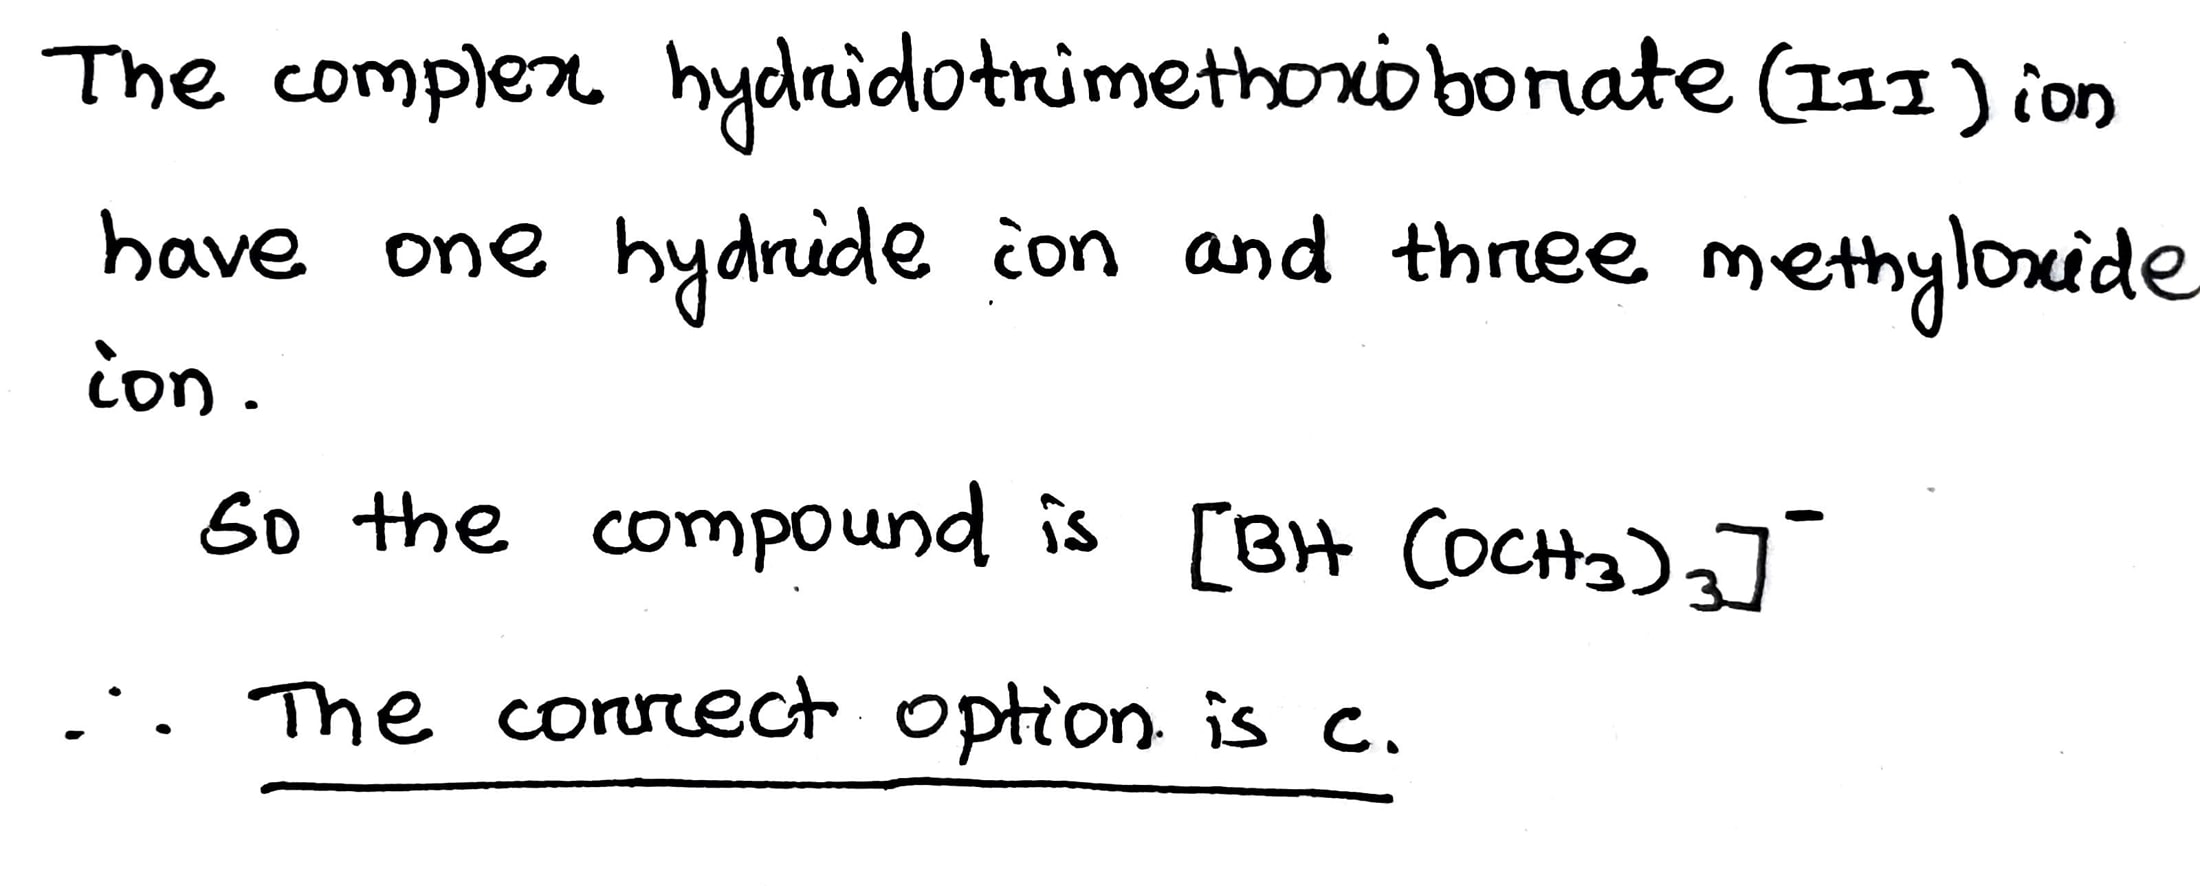 The complex hydridotrimethoxoborate (III) ion
have one hydride ion and three methyloxide
ion.
So the compound is [BH (OCH₃)₃]⁻
∴ The correct option is c.